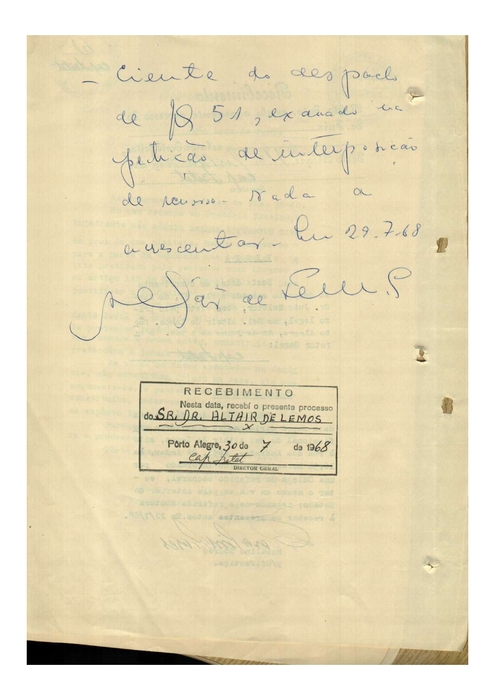 - Ciente do despacho
de fls 51, exarado na
petição de interposição
de recurso. Nada a
acrescentar. Em 29-7-68
de Lemos
RECEBIMENTO
Nesta data, recebi o presente processo
do SR. DR. ALTAIR DE LEMOS
x
Pôrto Alegre, 30 de 7 de 1968
DIRETOR GERAL